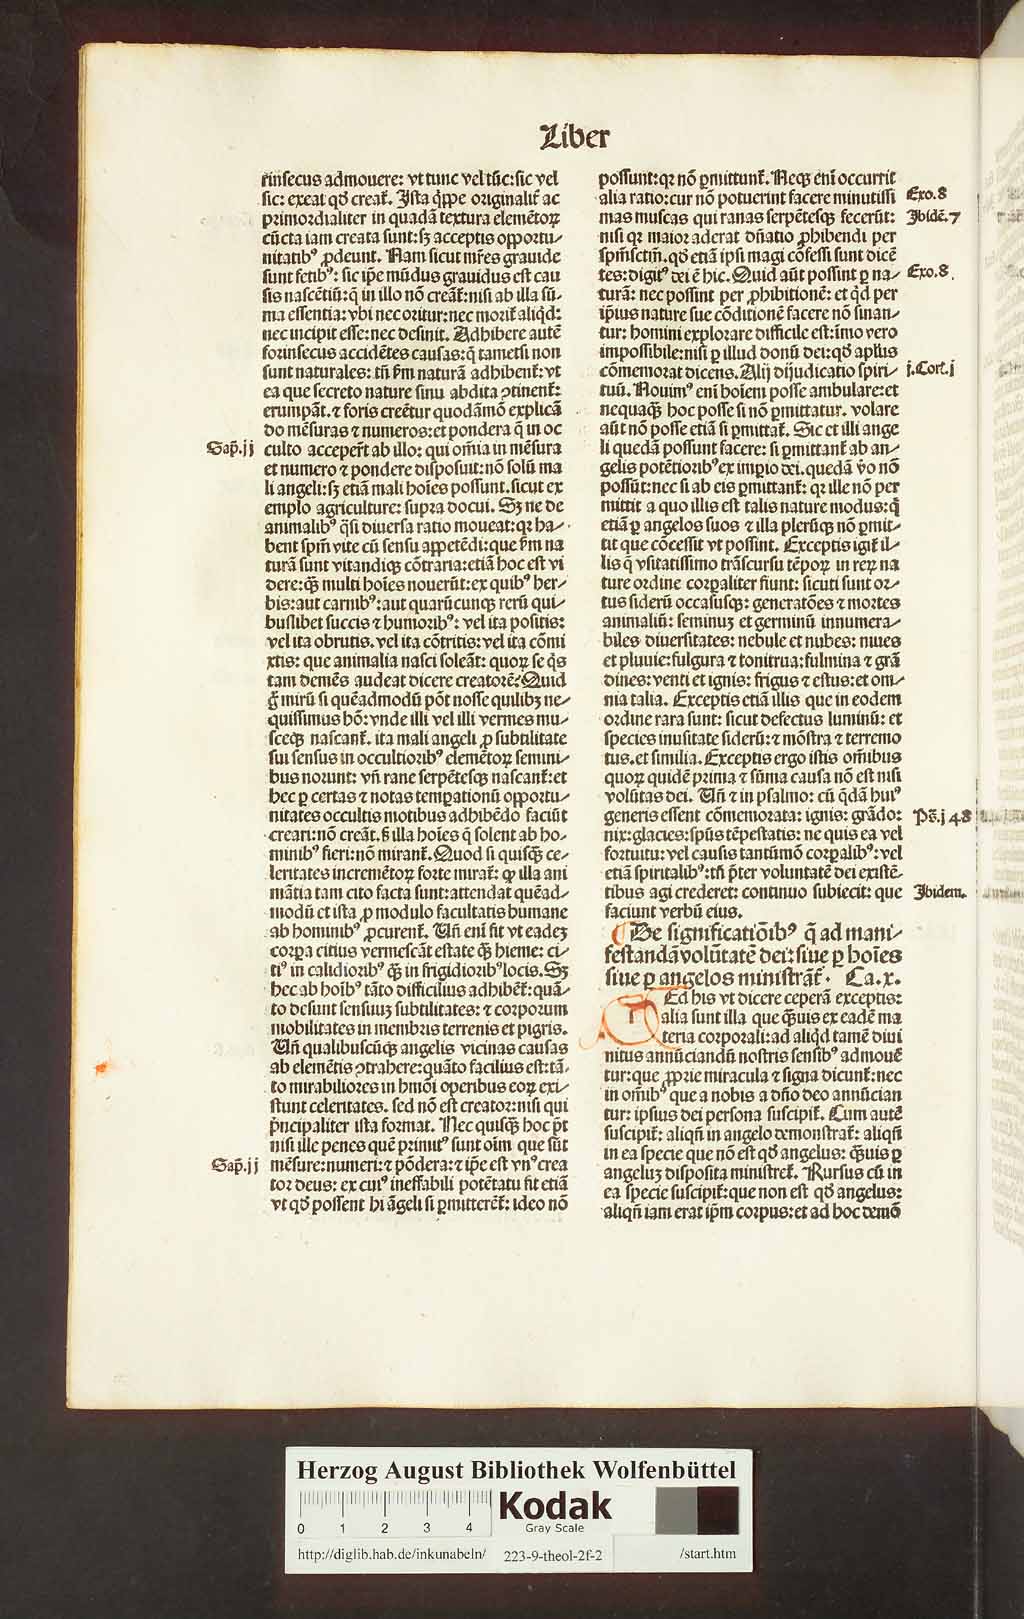 Liber
rinsecus admouere: vt tunc vel tūc: sic vel
sic: exeat qd̄ creat̄. Ista q̄ppe originalit̄ ac
primordialiter in quadā textura elemētoꝝ
cūcta iam creata sunt: sꝫ acceptis opportu⸗
nitatibꝰ ꝓdeunt. Nam sicut mr̄es grauide
sunt fetibꝰ: sic ip̄e mūdus grauidus est cau
sis nascētiū: q̄ in illo nō creāt̄: nisi ab illa sū⸗
ma essentia: vbi nec oritur: nec morit̄ aliqd̄:
nec incipit esse: nec desinit. Adhibere autē
forinsecus accidētes causas: q̄ tametsi non
sunt naturales: tn̄ ẜm naturā adhibent̄: vt
ea que secreto nature sinu abdita ꝯtinent̄:
erumpāt. ⁊ foris creētur quodāmō explicā
do mēsuras ⁊ numeros: et pondera q̄ in oc
Sap̄. ij
culto acceper̄t ab illo: qui om̄ia in mēsura
et numero ⁊ pondere disposuit: nō solū ma
li angeli: sꝫ etiā mali hoīes possunt. sicut ex
emplo agriculture: supra docui. Sꝫ ne de
animalibꝰ q̄si diuersa ratio moueat: qꝛ ha⸗
bent spm̄ vite cū sensu appetēdi: que ẜm na
turā sunt vitandiqꝫ cōtraria: etiā hoc est vi
dere: qꝙ multi hoīes nouerūt: ex quibꝰ her⸗
bis: aut carnibꝰ: aut quarūcunqꝫ rerū qui⸗
buslibet succis ⁊ humoribꝰ: vel ita positis:
vel ita obrutis. vel ita cōtritis: vel ita cōmi
xtis: que animalia nasci soleāt: quoꝝ se q̄s
tam demēs audeat dicere creatorē: Quid
g̊ mirū si quēadmodū pōt nosse quilibꝫ ne⸗
quissimus hō: vnde illi vel illi vermes mu⸗
sceqꝫ nascant̄. ita mali angeli ꝓ subtilitate
sui sensus in occultioribꝰ elemētoꝝ semini⸗
bus norunt: vn̄ rane serpētesqꝫ nascant̄: et
hec ꝑ certas ⁊ notas temꝑationū opportu⸗
nitates occultis motibus adhibēdo faciūt
creari: nō creāt. ẜ illa hoīes q̄ solent ab ho⸗
minibꝰ fieri: nō mirant̄. Quod si quisqꝙ ce⸗
leritates incremētoꝝ forte mirat̄: ꝙ illa ani
mātia tam cito facta sunt: attendat quēad⸗
modū et ista ꝓ modulo facultatis humane
ab hominibꝰ ꝓcurent̄. Vn̄ eni fit vt eadeꝫ
corꝑa citius vermescāt estate qꝙ hieme: ci⸗
tiꝰ in calidioribꝰ qꝙ in frigidioribꝰ locis. Sꝫ
hec ab hoībꝰ tāto difficilius adhibēt̄: quā⸗
to desunt sensuuꝫ subtilitates: ⁊ corporum
mobilitates in membris terrenis et pigris.
Vn̄ qualibuscūqꝫ angelis vicinas causas
ab elemētis ꝯtrahere: quāto facilius est: tā⸗
to mirabiliores in hmōi operibus eoꝝ exi⸗
stunt celeritates. sed nō est creator: nisi qui
p̄ncipaliter ista format. Nec quisqꝙ hoc p̄t
nisi ille penes quē primitꝰ sunt oīm que sūt
Sap̄. ij
mēsure: numeri: ⁊ pōdera: ⁊ ip̄e est vnꝰ crea
tor deus: ex cuiꝰ ineffabili potētatu fit etiā
vt qd̄ possent hi āgeli si ꝑmitterēt̄: ideo nō
possunt: qꝛ nō ꝑmittunt̄. Neqꝫ eni occurrit
alia ratio: cur nō potuerint facere minutissi
Exo. 8
mas muscas qui ranas serpētesqꝫ fecerūt:
Ibidē. 7
nisi qꝛ maior aderat dn̄atio ꝓhibendi per
spm̄sctm̄. qd̄ etiā ipsi magi cōfessi sunt dicē
tes: digitꝰ dei ē hic. Quid aūt possint ꝑ na⸗
Exo. 8.
turā: nec possint per ꝓhibitionē: et qd̄ per
ip̄ius nature sue cōditionē facere nō sinan⸗
tur: homini explorare difficile est: imo vero
impossibile: nisi ꝑ illud donū dei: qd̄ ap̄lus
cōmemorat dicens. Alij dijudicatio spiri⸗
j. Cor. j
tuū. Nouimꝰ eni hoīem posse ambulare: et
nequaqꝙ hoc posse si nō ꝑmittatur. volare
aūt nō posse etiā si ꝑmittat̄. Sic et illi ange
li quedā possunt facere: si ꝑmittant̄ ab an⸗
gelis potētioribꝰ ex imꝑio dei. quedā v̊o nō
possūt: nec si ab eis ꝑmittant̄: qꝛ ille nō per
mittit a quo illis est talis nature modus: q̄
etiā ꝑ angelos suos ⁊ illa plerūqꝫ nō ꝑmit⸗
tit que cōcessit vt possint. Exceptis igit̄ il⸗
lis q̄ vsitatissimo trāscursu tēpoꝝ in reꝝ na
ture ordine corꝑaliter fiunt: sicuti sunt or⸗
tus siderū occasusqꝫ: generatōes ⁊ mortes
animaliū: seminuꝫ et germinū innumera⸗
biles diuersitates: nebule et nubes: niues
et pluuie: fulgura ⁊ tonitrua: fulmina ⁊ grā
dines: venti et ignis: frigus ⁊ estus: et om⸗
nia talia. Exceptis etiā illis que in eodem
ordine rara sunt: sicut defectus luminū: et
species inusitate siderū: ⁊ mōstra ⁊ terremo
tus. et similia. Exceptis ergo istis om̄ibus
quoꝝ quidē prima ⁊ sūma causa nō est nisi
volūtas dei. Vn̄ ⁊ in psalmo: cū q̄dā huiꝰ
generis essent cōmemorata: ignis: grādo:
Ps̄. j 48
nix: glacies: spūs tēpestatis: ne quis ea vel
fortuitu: vel causis tantūmō corꝑalibꝰ: vel
etiā spiritalibꝰ: tn̄ p̄ter voluntatē dei existē⸗
tibus agi crederet: continuo subiecit: que
Ibidem.
faciunt verbū eius.
De significatiōibꝰ q̄ ad mani⸗
festandā volūtatē dei: siue ꝑ hoīes
siue ꝑ angelos ministrāt̄. Ca. x.
Ed his vt dicere ceperā exceptis:
alia sunt illa que qꝙuis ex eadē ma
teria corporali: ad aliqd̄ tamē diui
nitus annūciandū nostris sensibꝰ admouē
tur: que ꝓprie miracula ⁊ signa dicunt̄: nec
in om̄ibꝰ que a nobis a dn̄o deo annūcian
tur: ipsius dei persona suscipit̄. Cum autē
suscipit̄: aliqn̄ in angelo demonstrat̄: aliqn̄
in ea specie que nō est qd̄ angelus: qꝙuis ꝑ
angeluꝫ disposita ministret̄. Rursus cū in
ea specie suscipit̄: que non est qd̄ angelus:
aliqn̄ iam erat ip̄m corpus: et ad hoc demō
Herzog August Bibliothek Wolfenbüttel
0 1 2 3 4
Kodak
Gray Scale
http://diglib.hab.de/inkunabeln/ 223-9-theol-2f-2 /start.htm